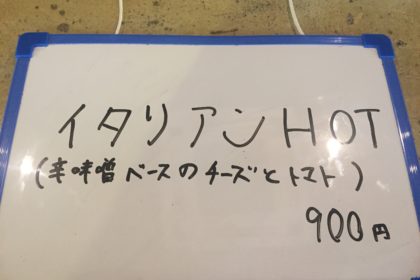 イタリアンHOT
(辛味噌ベースのチーズとトマト)
900円